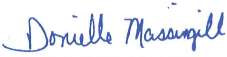 Danielle Massingill